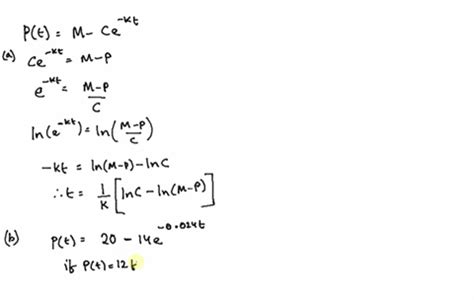 P(t) = M - Ce^{-kt}
(a) Ce^{-kt} = M-P
e^{-kt} = \frac{M-P}{C}
ln(e^{-kt}) = ln(\frac{M-P}{C})
-kt = ln(M-P) - lnC
∴ t = \frac{1}{K} [lnC - ln(M-P)]
(b) P(t) = 20 - 14e^{-0.024t}
if P(t) = 12 t